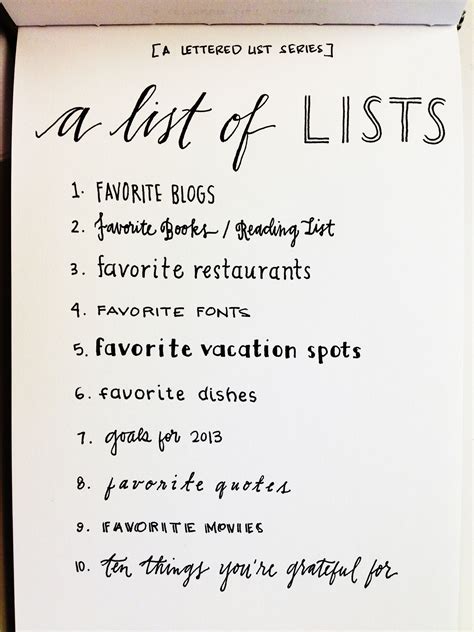 [A LETTERED LIST SERIES]
a list of LISTS
1. FAVORITE BLOGS
2. favorite Books / Reading List
3. favorite restaurants
4. FAVORITE FONTS
5. favorite vacation spots
6. favorite dishes
7. goals for 2013
8. favorite quotes
9. FAVORITE MOVIES
10. ten things you're grateful for